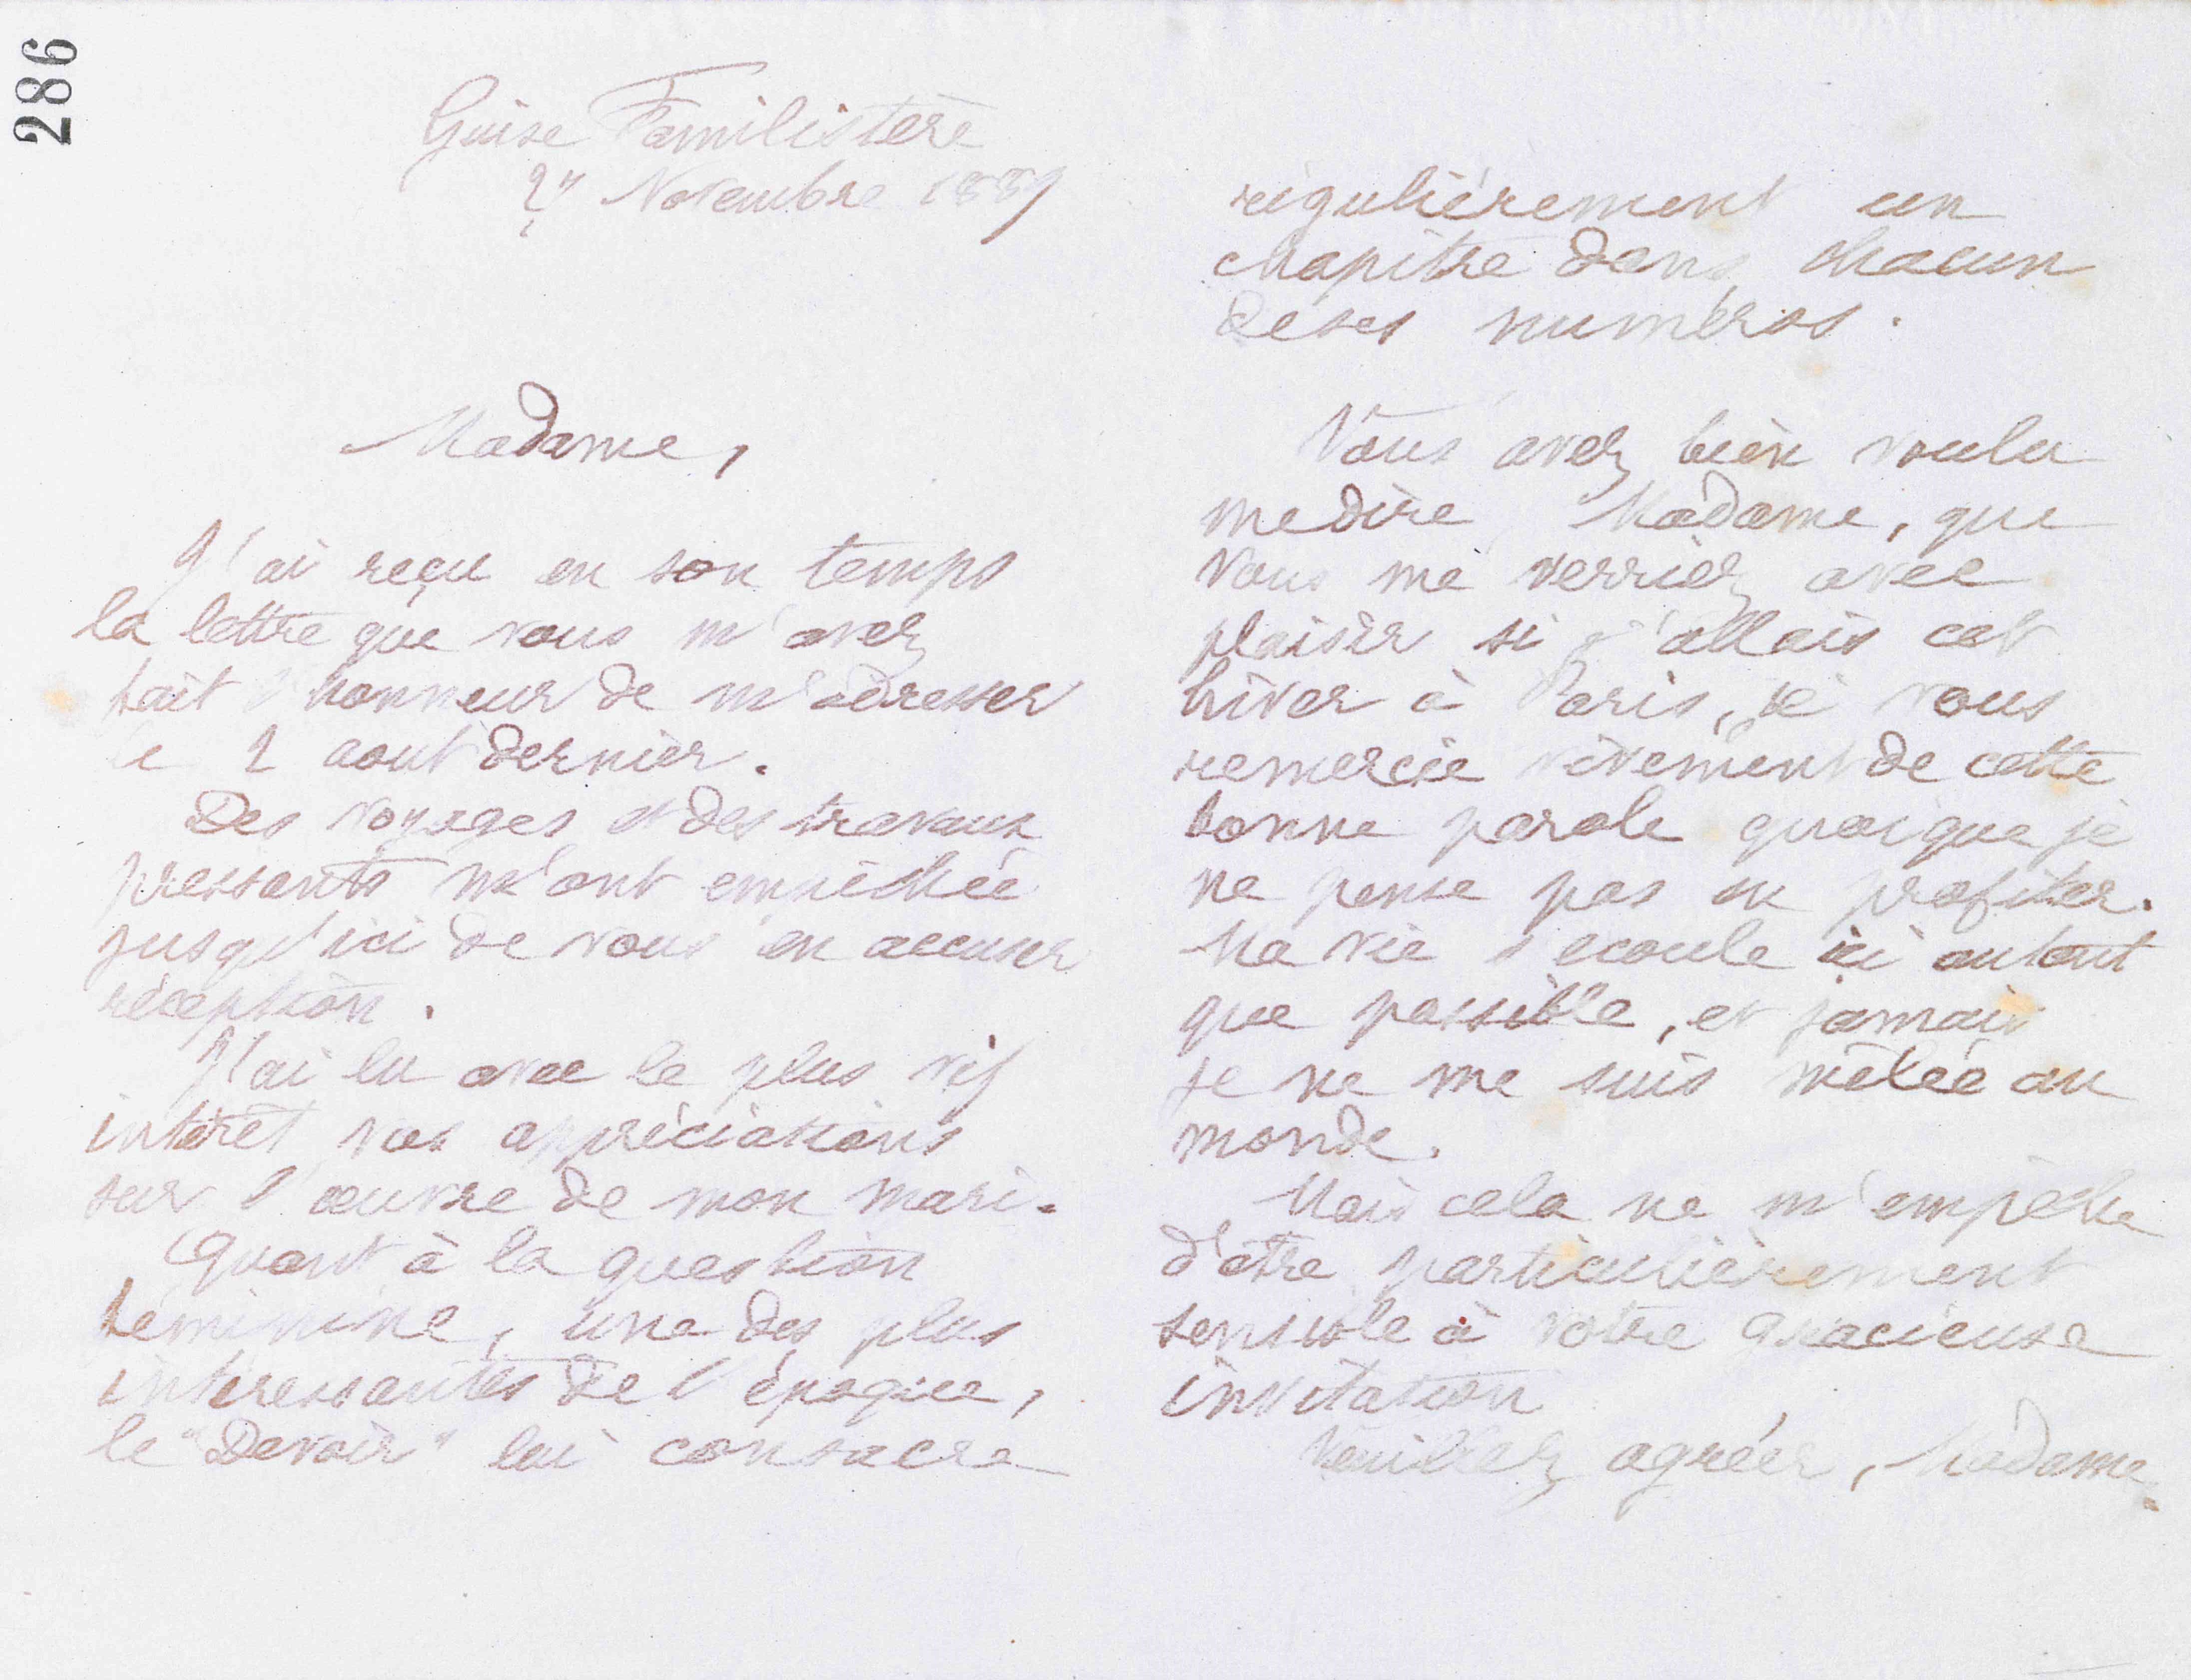 286
Guise Familistère
27 Novembre 1889
Madame,
J'ai reçu en son temps
la lettre que vous m'avez
fait l'honneur de m'adresser
le 2 aout dernier.
Des voyages et des travaux
pressants m'ont empêchée
jusqu'ici de vous en accuser
réception.
J'ai lu avec le plus vif
intérêt vos appréciations
sur l'œuvre de mon mari.
Quant à la question
féminine, une des plus
intéressantes de l'époque,
le "Devoir" lui consacre
régulièrement un
chapitre dans chacun
de ses numéros.
Vous avez bien voulu
me dire Madame, que
vous me verriez avec
plaisir si j'allais cet
hiver à Paris, je vous
remercie vivement de cette
bonne parole quoique je
ne pense pas en profiter.
Ma vie s'ecoule ici autant
que possible, et jamais
je ne me suis mêlée au
monde.
Mais cela ne m'empêche
d'être particulièrement
sensible à votre gracieuse
invitation
Veuillez agréer, Madame,